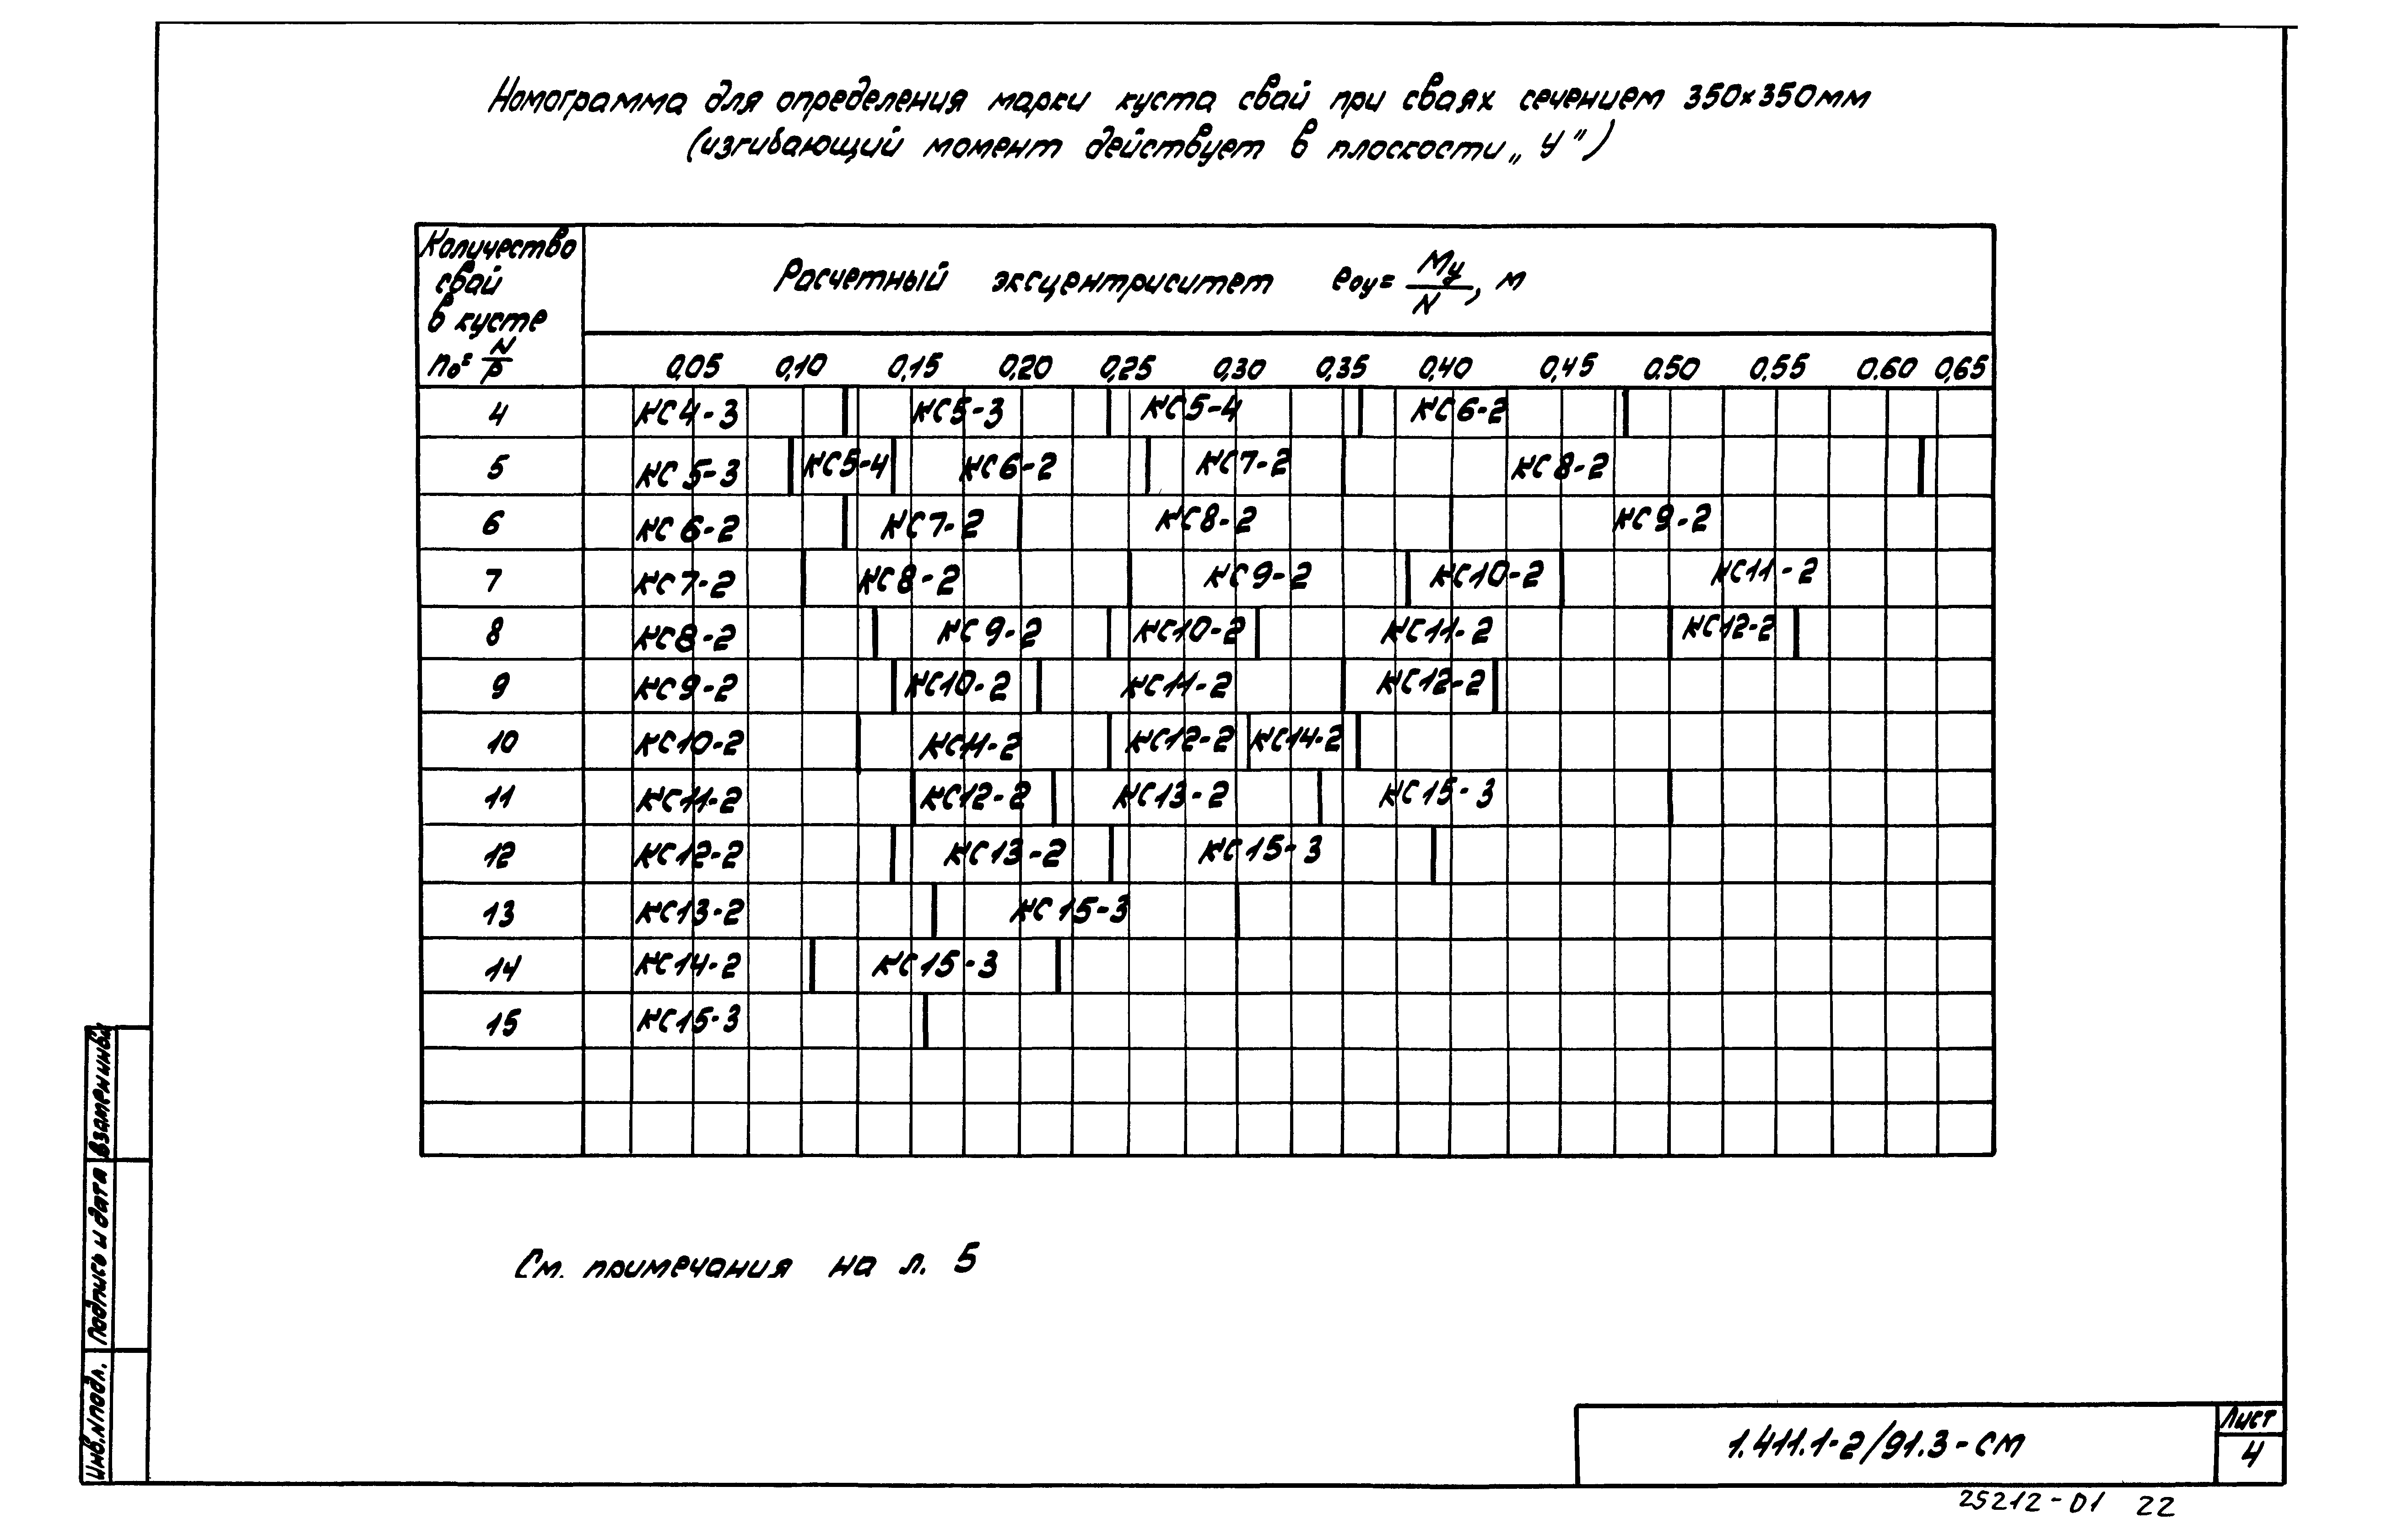 Номограмма для определения марки куста свай при сваях сечением 350×350мм
(изгибающий момент действует в плоскости „У")
Количество
свай
в кусте
n₀= N/P
Расчетный эксцентриситет e₀у= Mу/N, м
0,05 0,10 0,15 0,20 0,25 0,30 0,35 0,40 0,45 0.50 0,55 0.60 0,65
4 КС4-3 КС5-3 КС5-4 КС6-2
5 КС5-3 КС5-4 КС6-2 КС7-2 КС8-2
6 КС6-2 КС7-2 КС8-2 КС9-2
7 КС7-2 КС8-2 КС9-2 КС10-2 КС11-2
8 КС8-2 КС9-2 КС10-2 КС11-2 КС12-2
9 КС9-2 КС10-2 КС11-2 КС12-2
10 КС10-2 КС11-2 КС12-2 КС14-2
11 КС11-2 КС12-2 КС13-2 КС15-3
12 КС12-2 КС13-2 КС15-3
13 КС13-2 КС15-3
14 КС14-2 КС15-3
15 КС15-3
См. примечания на л. 5
Инв.N подл. Подпись и дата Взамен инв.
1.411.1-2/91.3-СМ
Лист
4
25212-01 22